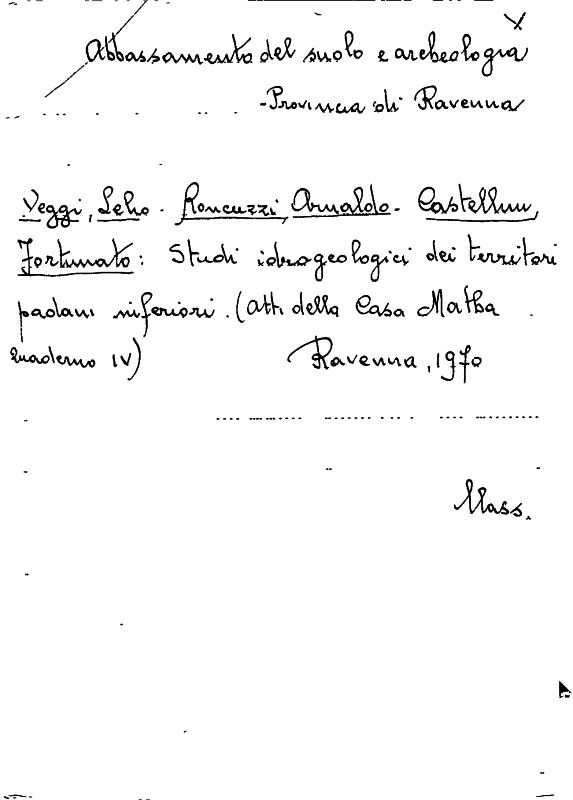 Abbassamento del suolo e archeologia
- Provincia di Ravenna
Veggi, Leho - Roncuzzi, Arnaldo - Castellini,
Fortunato: Studi idrogeologici dei territori
padani inferiori. (Atti della Casa Matha
Quaderno IV) Ravenna, 1970
Mass.